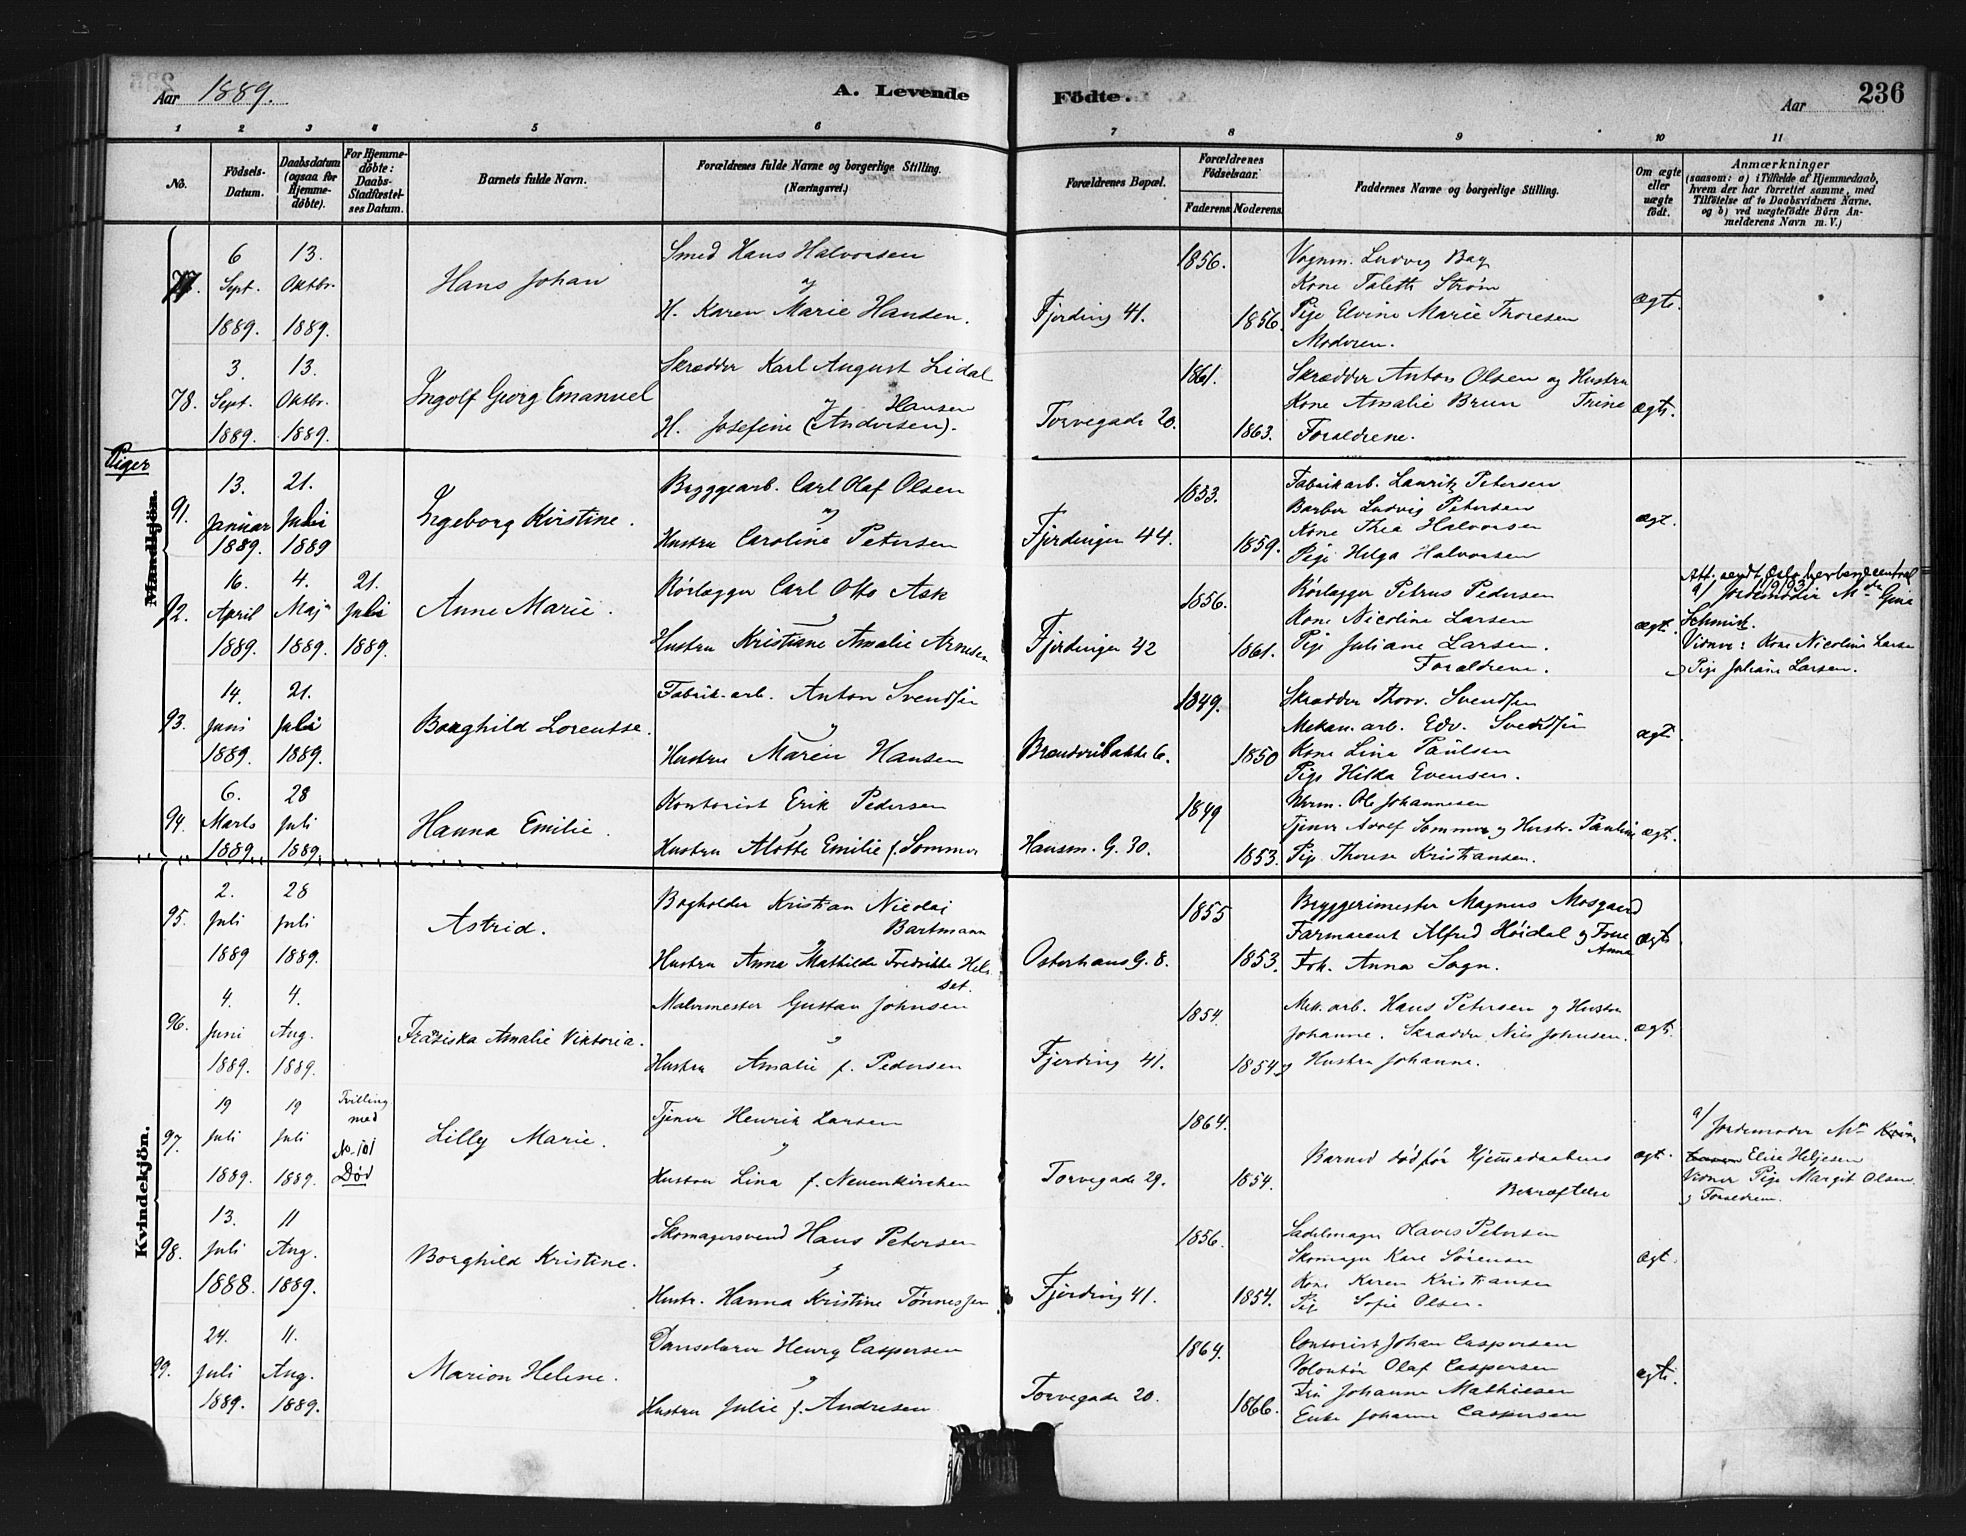 Aar 1889.
A. Levende
Födte.
Aar
236
1 2 3 4 5 6 7 8 9 10 11
No.
Födsels-Datum.
Daabsdatum (ogsaa for Hjemme-döbte).
For Hjemme-döbte: Daabs-Stadfæstel-ses Datum.
Barnets fulde Navn.
Forældrenes fulde Navne og borgerlige Stilling. (Næringsvei.)
Forældrenes Bopæl.
Forældrenes Födselsaar.
Faderens. Moderens.
Faddernes Navne og borgerlige Stilling.
Om ægte eller uægte födt.
Anmærkninger
(saasom: a) i Tilfælde af Hjemmedaab,
hvem der har forrettet samme, med
Tilföielse af to Daabsvidners Navne.
og b) ved uægtefödte Börn An-
melderens Navn m. V.)
77. 6 Sept. 1889. 13. Oktbr. 1889.
Hans Johan
Smed Hans Halvorsen
og
H. Karen Marie Hansen.
Fjerding 41.
1856. 1856.
Vognm. Ludvig Bag
Kone Taleth Strøm
Pige Elvine Marie Thoresen
Moderen.
ægte.
78. 3. Sept. 1889. 13. Oktbr. 1889.
Ingolf Georg Emanuel
Skrædder Karl August Lidal
og Hansen
H. Josefine (Andersen).
Torvegade 20.
1861. 1863.
Skrædder Anton Olsen og Hustru
Kone Amalie Brun Trine
Forældrene.
ægte.
Piger
Mandkjön.
91. 13. Januar 1889. 21. Juli 1889
Ingeborg Kirstine.
Bryggearb. Carl Olaf Olsen
og
Hustru Caroline Petersen
Fjerdingen 44.
1853. 1859.
Fabrikarb. Lauritz Petersen
Barber Ludvig Petersen
Kone Thea Halvorsen
Pige Helga Halvorsen
ægt.
92. 16. April 1889. 4. Maj 1889. 21. Juli 1889.
Anne Marie.
Rørlægger Carl Otto Ask
Hustru Kristiane Amalie Arnesen
Fjerdingen 42
1856. 1861.
Rørlægger Petrus Pedersen
Kone Nicoline Larsen
Pige Juliane Larsen.
Forældrene.
ægt.
a/ Jordemoder Gina
Schmidt.
Vidner: Kone Nicoline Larsen
Pige Juliane Larsen.
93. 14. Juni 1889. 21. Juli 1889.
Borghild Lorentse.
Fabrik-arb. Anton Svendsen
Hustru Maren Hansen
6.
1849. 1850
Skrædder Thorv. Svendsen
Mekan. arb. Edv. Svendsen
Kone Lina Paulsen
Pige Hilda Evensen.
ægt.
94. 6. Marts 1889. 28 Juli 1889.
Hanna Emilie.
Kontorist Erik Pedersen
Hustru Emilie f. Sommer
Hausm. G. 30.
1849 1853.
Ole Johannesen
Tjener Adolf Sommer og Hustr. Pauline
Pige Therese Kristiansen.
ægt.
95. 2. Juli 1889 28 Juli 1889.
Astrid.
Bogholder Kristian Nicolai
Bartmann
Hustru Anna Mathilde Fredrikke Hels-
set.
Osterhaus G. 8.
1855 1853.
Bryggerimester Magnus Mosgaard
Farmaceut Alfred Høidal og Frue
Anna
Frk. Anna Sogn.
ægt.
96. 4. Juni 1889. 4. Aug. 1889.
Fraziska Amalie Viktoria.
Malermester Gustav Johnsen
Hustru Amalie f. Pedersen
Fjerding 41.
1854. 1854
Mek. arb. Hans Petersen og Hustru
Johanne. Skrædder Nils Johnsen.
og Hustru Johanne.
ægt.
Kvindekjön.
97. 19 Juli 1889. 19 Juli 1889.
Tvilling
med
No. 101
Død
Lilly Marie.
Tjener Henrik Larsen
Hustru Lina f. Neuenkirchen
Torvegade 29.
1864. 1854.
Barnet død før Hjemmedaabens
Bekræftelse
ægt.
a/ Jordemoder
Elise Heljesen
Vidner Pige Margit Olsen
og Forældrene.
98. 13. Juli 1888. 11 Aug. 1889.
Borghild Kristine.
Skomagersvend Hans Petersen
Hustr. Hanna Kristine Tønnessen
Fjerding 41.
1856. 1854.
Sadelmager Hans Petersen
Skomager Karl Sørensen
Kone Karen Kristiansen
Pige Sofie Olsen.
ægt.
99. 24. Juli 1889. 11. Aug. 1889.
Marion Helene.
Danselærer Henry Caspersen
Hustru Julie f. Andresen
Torvegade 20.
1864. 1866.
Contorist Johan Caspersen
Volontør Olaf Caspersen
Frk Johanne Mathiesen
Enke Johanne Caspersen
ægt.